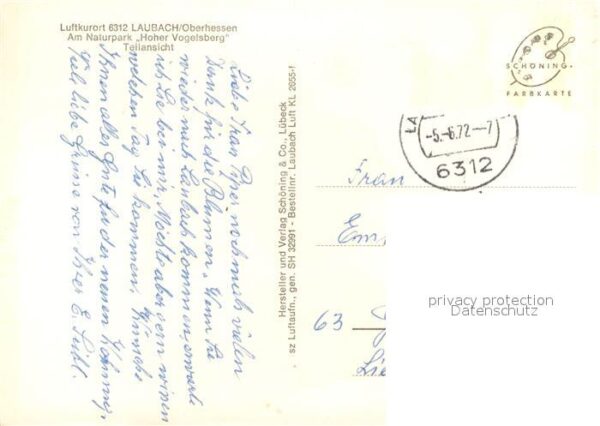 Luftkurort 6312 LAUBACH/Oberhessen
Am Naturpark „Hoher Vogelsberg"
Teilansicht
SCHÖNING
FARBKARTE
LA
-5.-6.72--7
6312
Liebe Frau nochmals vielen
Dank für die Blumen. Wenn Sie
wieder nach Laubach kommen, erwarte
ich Sie bei mir. Möchte aber gern wissen
welchen Tag Sie kommen. Wünsche
Ihnen alles Gute in der neuen Wohnung.
Viele liebe Grüße von Ihrer E.
Hersteller und Verlag Schöning & Co., Lübeck
sz Luftaufn., gen. SH 32/291 - Bestellnr. Laubach Luft KL 2655-1
Frau
63
privacy protection
Datenschutz